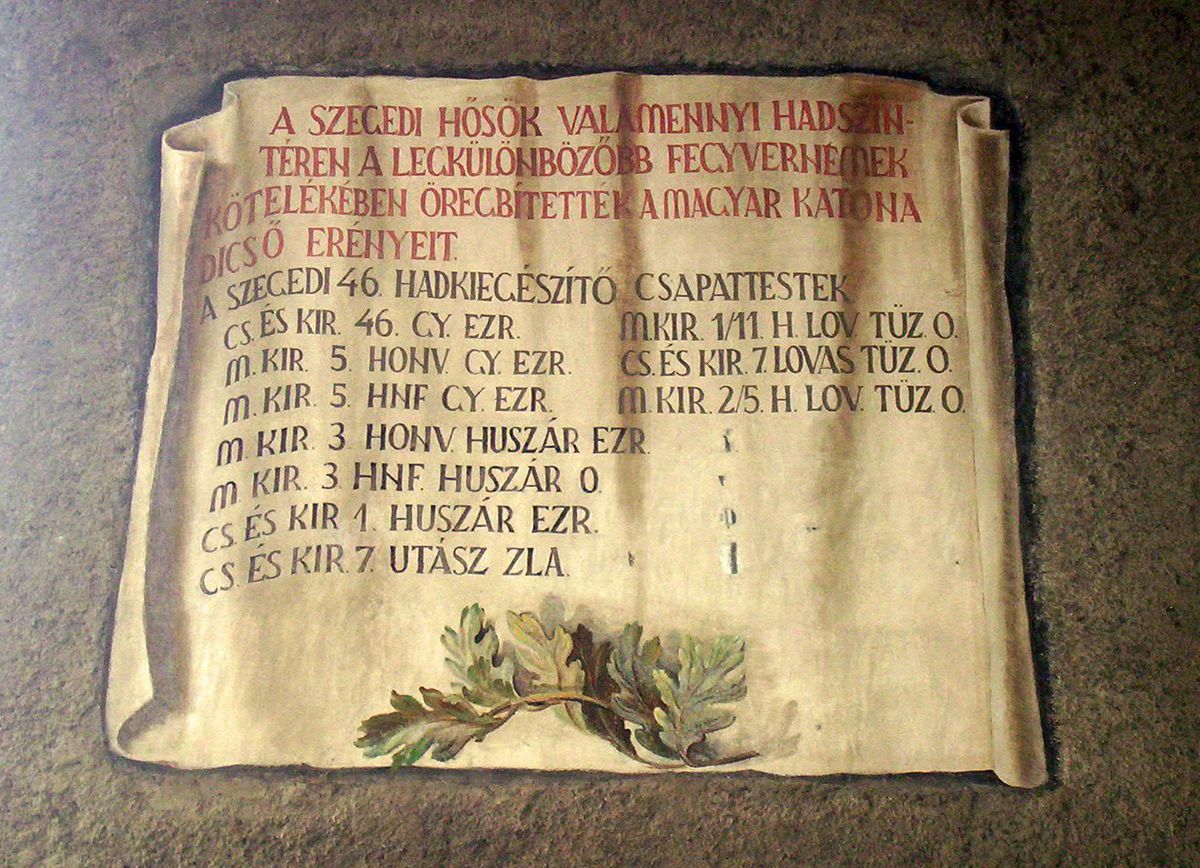 A SZEGEDI HŐSÖK VALAMENNYI HADSZÍN-
TÉREN A LEGKÜLÖNBÖZŐBB FEGYVERNEMEK
KÖTELÉKÉBEN ÖREGBÍTETTÉK A MAGYAR KATONA
DICSŐ ERÉNYEIT.
A SZEGEDI 46. HADKIEGÉSZÍTŐ CSAPATTESTEK
CS. ÉS KIR. 46. GY. EZR. M. KIR. 1/11. H. LOV. TÜZ. O.
M. KIR. 5. HONV. GY. EZR. CS. ÉS KIR. 7. LOVAS TÜZ. O.
M. KIR. 5. HNF GY. EZR. M. KIR. 2/5. H. LOV. TÜZ. O.
M. KIR. 3. HONV. HUSZÁR EZR.
M. KIR. 3 HNF. HUSZÁR O.
CS. ÉS KIR 1. HUSZÁR EZR.
CS. ÉS KIR. 7. UTÁSZ ZLA.